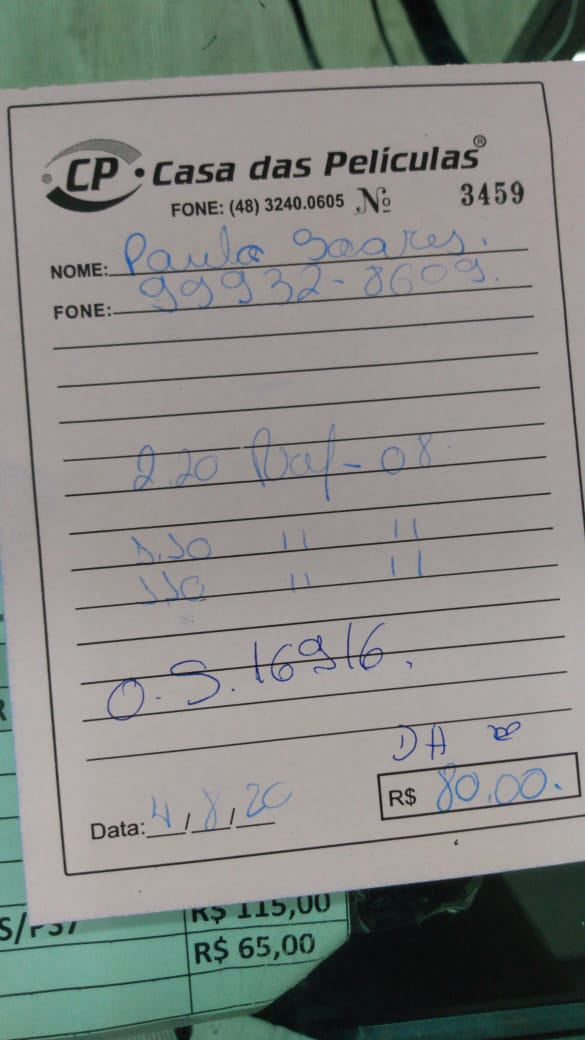 CP · Casa das Películas®
FONE: (48) 3240.0605 Nº 3459
NOME: Paulo Soares.
FONE: 99932-8609.
2.20
- 08
" "
" "
O.S. 16916.
DA
R$ 80,00.
Data: 4/8/20
R$ 115,00
R$ 65,00